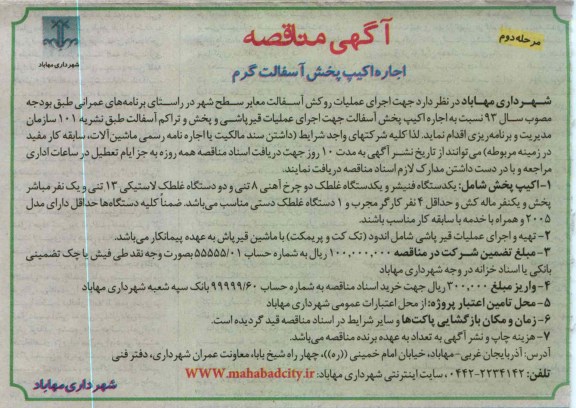 آگهی مناقصه
مرحله دوم
شهرداری مهاباد
اجاره اکیپ پخش آسفالت گرم
شهرداری مهاباد در نظر دارد جهت اجرای عملیات روکش آسفالت معابر سطح شهر در راستای برنامه‌های عمرانی طبق بودجه
مصوب سال ۹۳ نسبت به اجاره اکیپ پخش آسفالت جهت اجرای عملیات قیرپاشی و پخش و تراکم آسفالت طبق نشریه ۱۰۱ سازمان
مدیریت و برنامه‌ریزی اقدام نماید. لذا کلیه شرکتهای واجد شرایط (داشتن سند مالکیت یا اجاره نامه رسمی ماشین‌آلات، سابقه کار مفید
در زمینه مربوطه) می‌توانند از تاریخ نشر آگهی به مدت ۱۰ روز جهت دریافت اسناد مناقصه همه روزه به جز ایام تعطیل در ساعات اداری
مراجعه و با در دست داشتن مدارک لازم اسناد مناقصه دریافت نمایند.
۱-اکیپ پخش شامل: یکدستگاه فنیشر و یکدستگاه غلطک دو چرخ آهنی ۸ تنی و دو دستگاه غلطک لاستیکی ۱۳ تنی و یک نفر مباشر
پخش و یکنفر ماله کش و حداقل ۴ نفر کارگر مجرب و ۱ دستگاه غلطک دستی مناسب می‌باشد. ضمناً کلیه دستگاه‌ها حداقل دارای مدل
۲۰۰۵ و همراه با خدمه با سابقه کار مناسب باشند.
۲- تهیه و اجرای عملیات قیر پاشی شامل اندود (تک کت و پریمکت) با ماشین قیرپاش به عهده پیمانکار می‌باشد.
۳-مبلغ تضمین شرکت در مناقصه ۱۰۰,۰۰۰,۰۰۰ ریال به شماره حساب ۵۵۵۵۵/۰۱ بصورت وجه نقد طی فیش یا چک تضمینی
بانکی یا اسناد خزانه در وجه شهرداری مهاباد
۴-واریز مبلغ ۳۰۰,۰۰۰ ریال جهت خرید اسناد مناقصه به شماره حساب ۹۹۹۹۹/۶۰ بانک سپه شعبه شهرداری مهاباد
۵- محل تامین اعتبار پروژه: از محل اعتبارات عمومی شهرداری مهاباد
۶- زمان و مکان بازگشایی پاکت‌ها و سایر شرایط در اسناد مناقصه قید گردیده است.
۷- هزینه چاپ و نشر آگهی به تعداد به عهده برنده مناقصه می‌باشد.
آدرس: آذربایجان غربی-مهاباد، خیابان امام خمینی ((ره))، چهار راه شیخ بابا، معاونت عمران شهرداری، دفتر فنی
تلفن: ۲۲۳۴۱۴۲-۰۴۴۲، سایت اینترنتی شهرداری مهاباد: WWW.mahabadcity.ir
شهرداری مهاباد